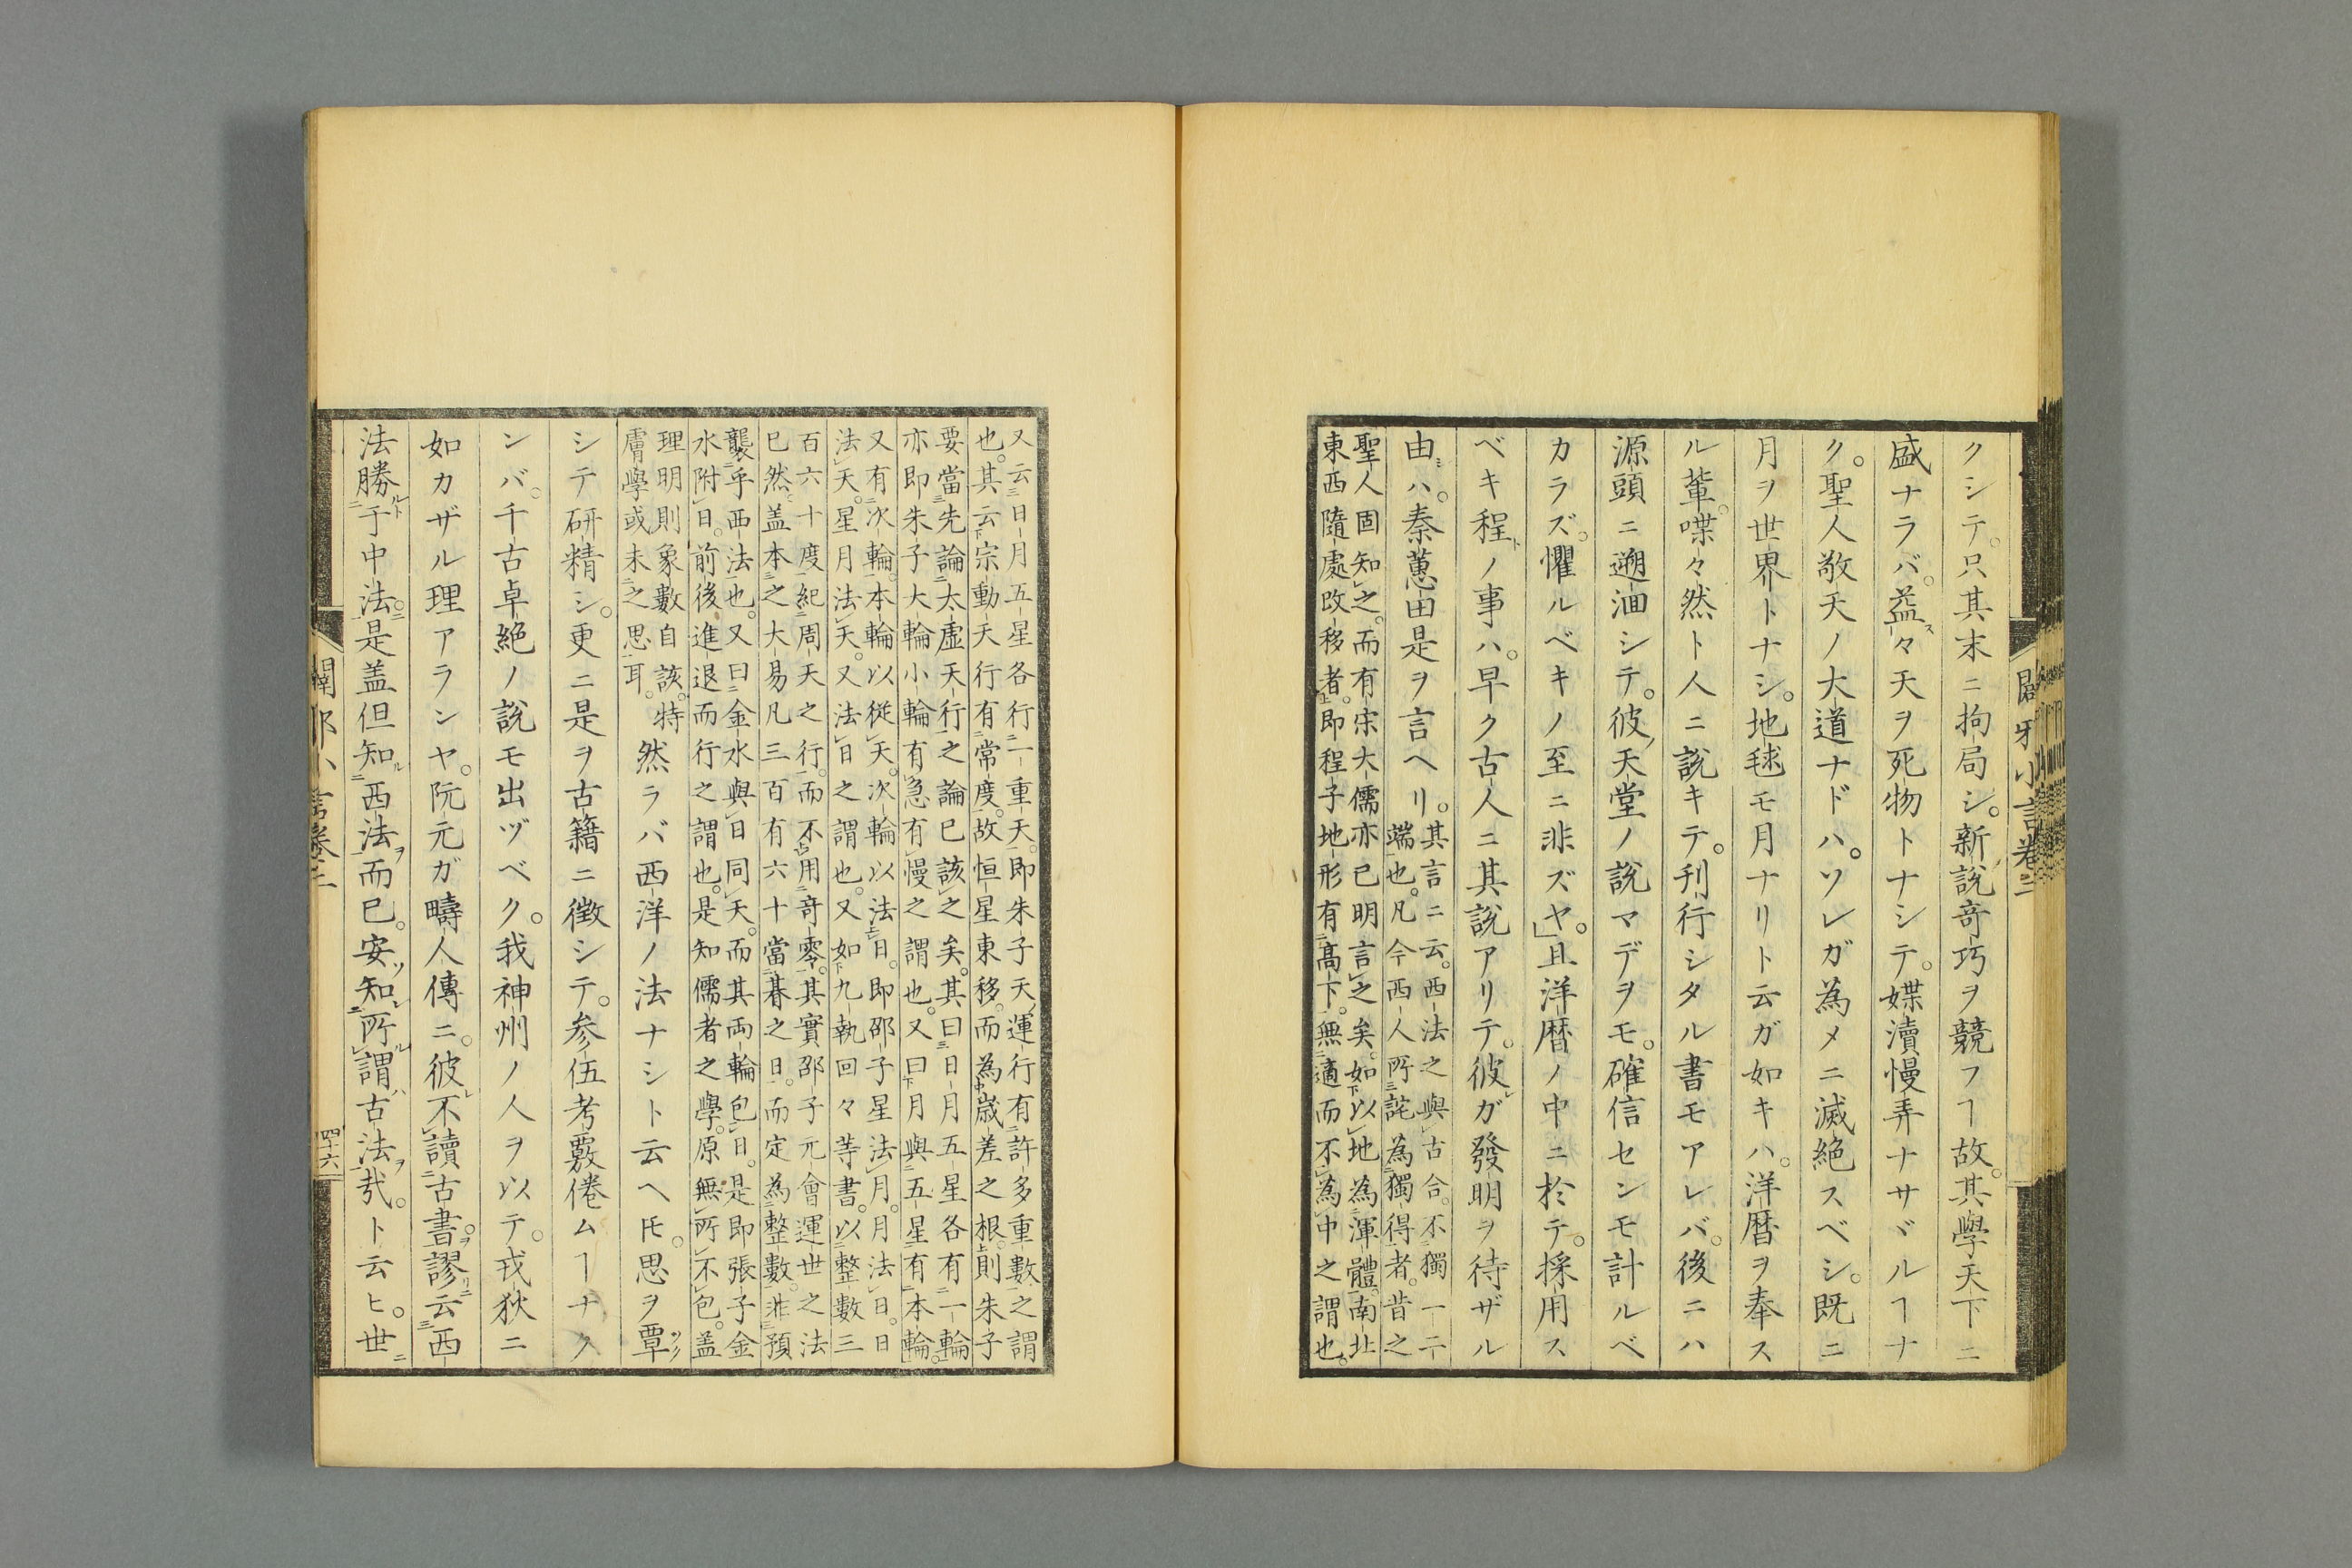 クシテ。只其末ニ拘局シ。新說奇巧ヲ競フヿ故。其學天下ニ
盛ナラバ。益々天ヲ死物トナシテ。媟瀆慢弄ナサヾルヿナ
ク。聖人敬天ノ大道ナドハ。ソレガ為メニ滅絶スベシ。既ニ
月ヲ世界トナシ。地毬モ月ナリト云ガ如キハ。洋曆ヲ奉ス
ル輩。喋々然ト人ニ說キテ。刊行シタル書モアレバ。後ニハ
源頭ニ遡洄シテ。彼ノ天堂ノ說マデヲモ。確信センモ計ルベ
カラズ。懼ルベキノ至ニ非ズヤ。」且洋曆ノ中ニ於テ。採用ス
ベキ程ノ事ハ。早ク古人ニ其說アリテ。彼レガ發明ヲ待ザル
由ハ。秦蕙田是ヲ言ヘリ。
其言ニ云。西法之與古合。不獨一二
端也。凡今西人所詫為獨得者。昔之
聖人固知之。而有宋大儒亦已明言之矣。如以地為渾體。南北
東西隨處改移者。即程子地形有高下。無適而不為中之謂也。
又云日月五星各行一重天。即朱子天運行有許多重數之謂
也。其云宗動天行有常度。故恒星東移。而為歲差之根。則朱子
要當先論太虛天行之論已該之矣。其曰日月五星各有一輪
亦即朱子大輪小輪有急有慢之謂也。又曰月與五星有本輪。
又有次輪。本輪以從天。次輪以法日。即邵子星法月。月法日。日
法天。星月法天。又法日之謂也。又如九執回々等書。以整數三
百六十度紀周天之行。而不用奇零。其實邵子元會運世之法
已然。蓋本之大易凡三百有六十當朞之日。而定為整數。非預
襲乎西法也。又曰金水與日同天。而其両輪包日。是即張子金
水附日。前後進退而行之謂也。是知儒者之學。原無所不包。盖
理明則象數自該。特
膚學或未之思耳。
然ラバ西洋ノ法ナシト云ヘ𪜈。思ヲ覃
シテ研精シ。更ニ是ヲ古籍ニ徵シテ。参伍考覈倦ムヿナク
ンバ。千古卓絶ノ說モ出ヅベク。我神州ノ人ヲ以テ。戎狄ニ
如カザル理アランヤ。阮元ガ疇人傳ニ。彼不讀古書。謬云西
法勝于中法。是盖但知西法而已。安知所謂古法哉。ト云ヒ。世
闢邪小言卷二
四十六
闢邪小言卷二